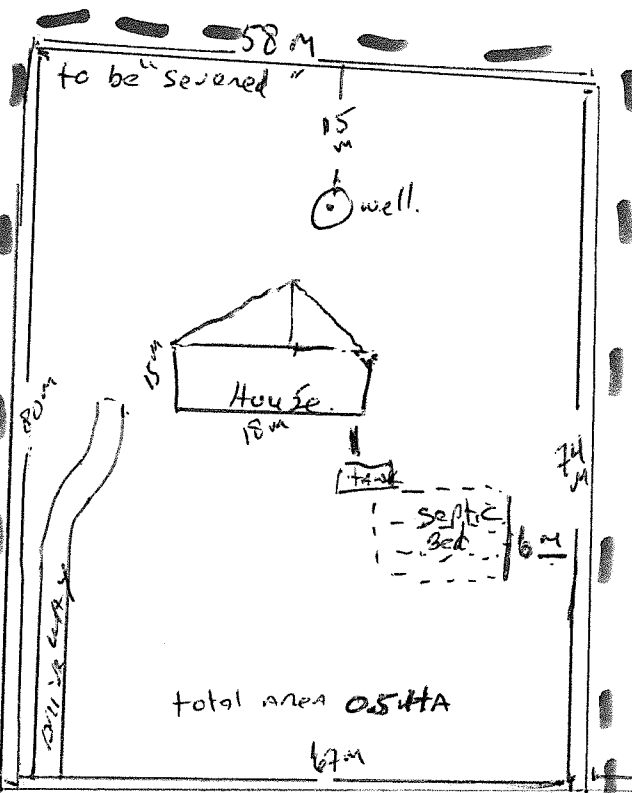 58 m
to be "severed"
15
m
well.
15 m
House.
18 m
80 m
74
M
tank
septic
Bed
6 m
Driveway
total area 0.5 HA
67 m